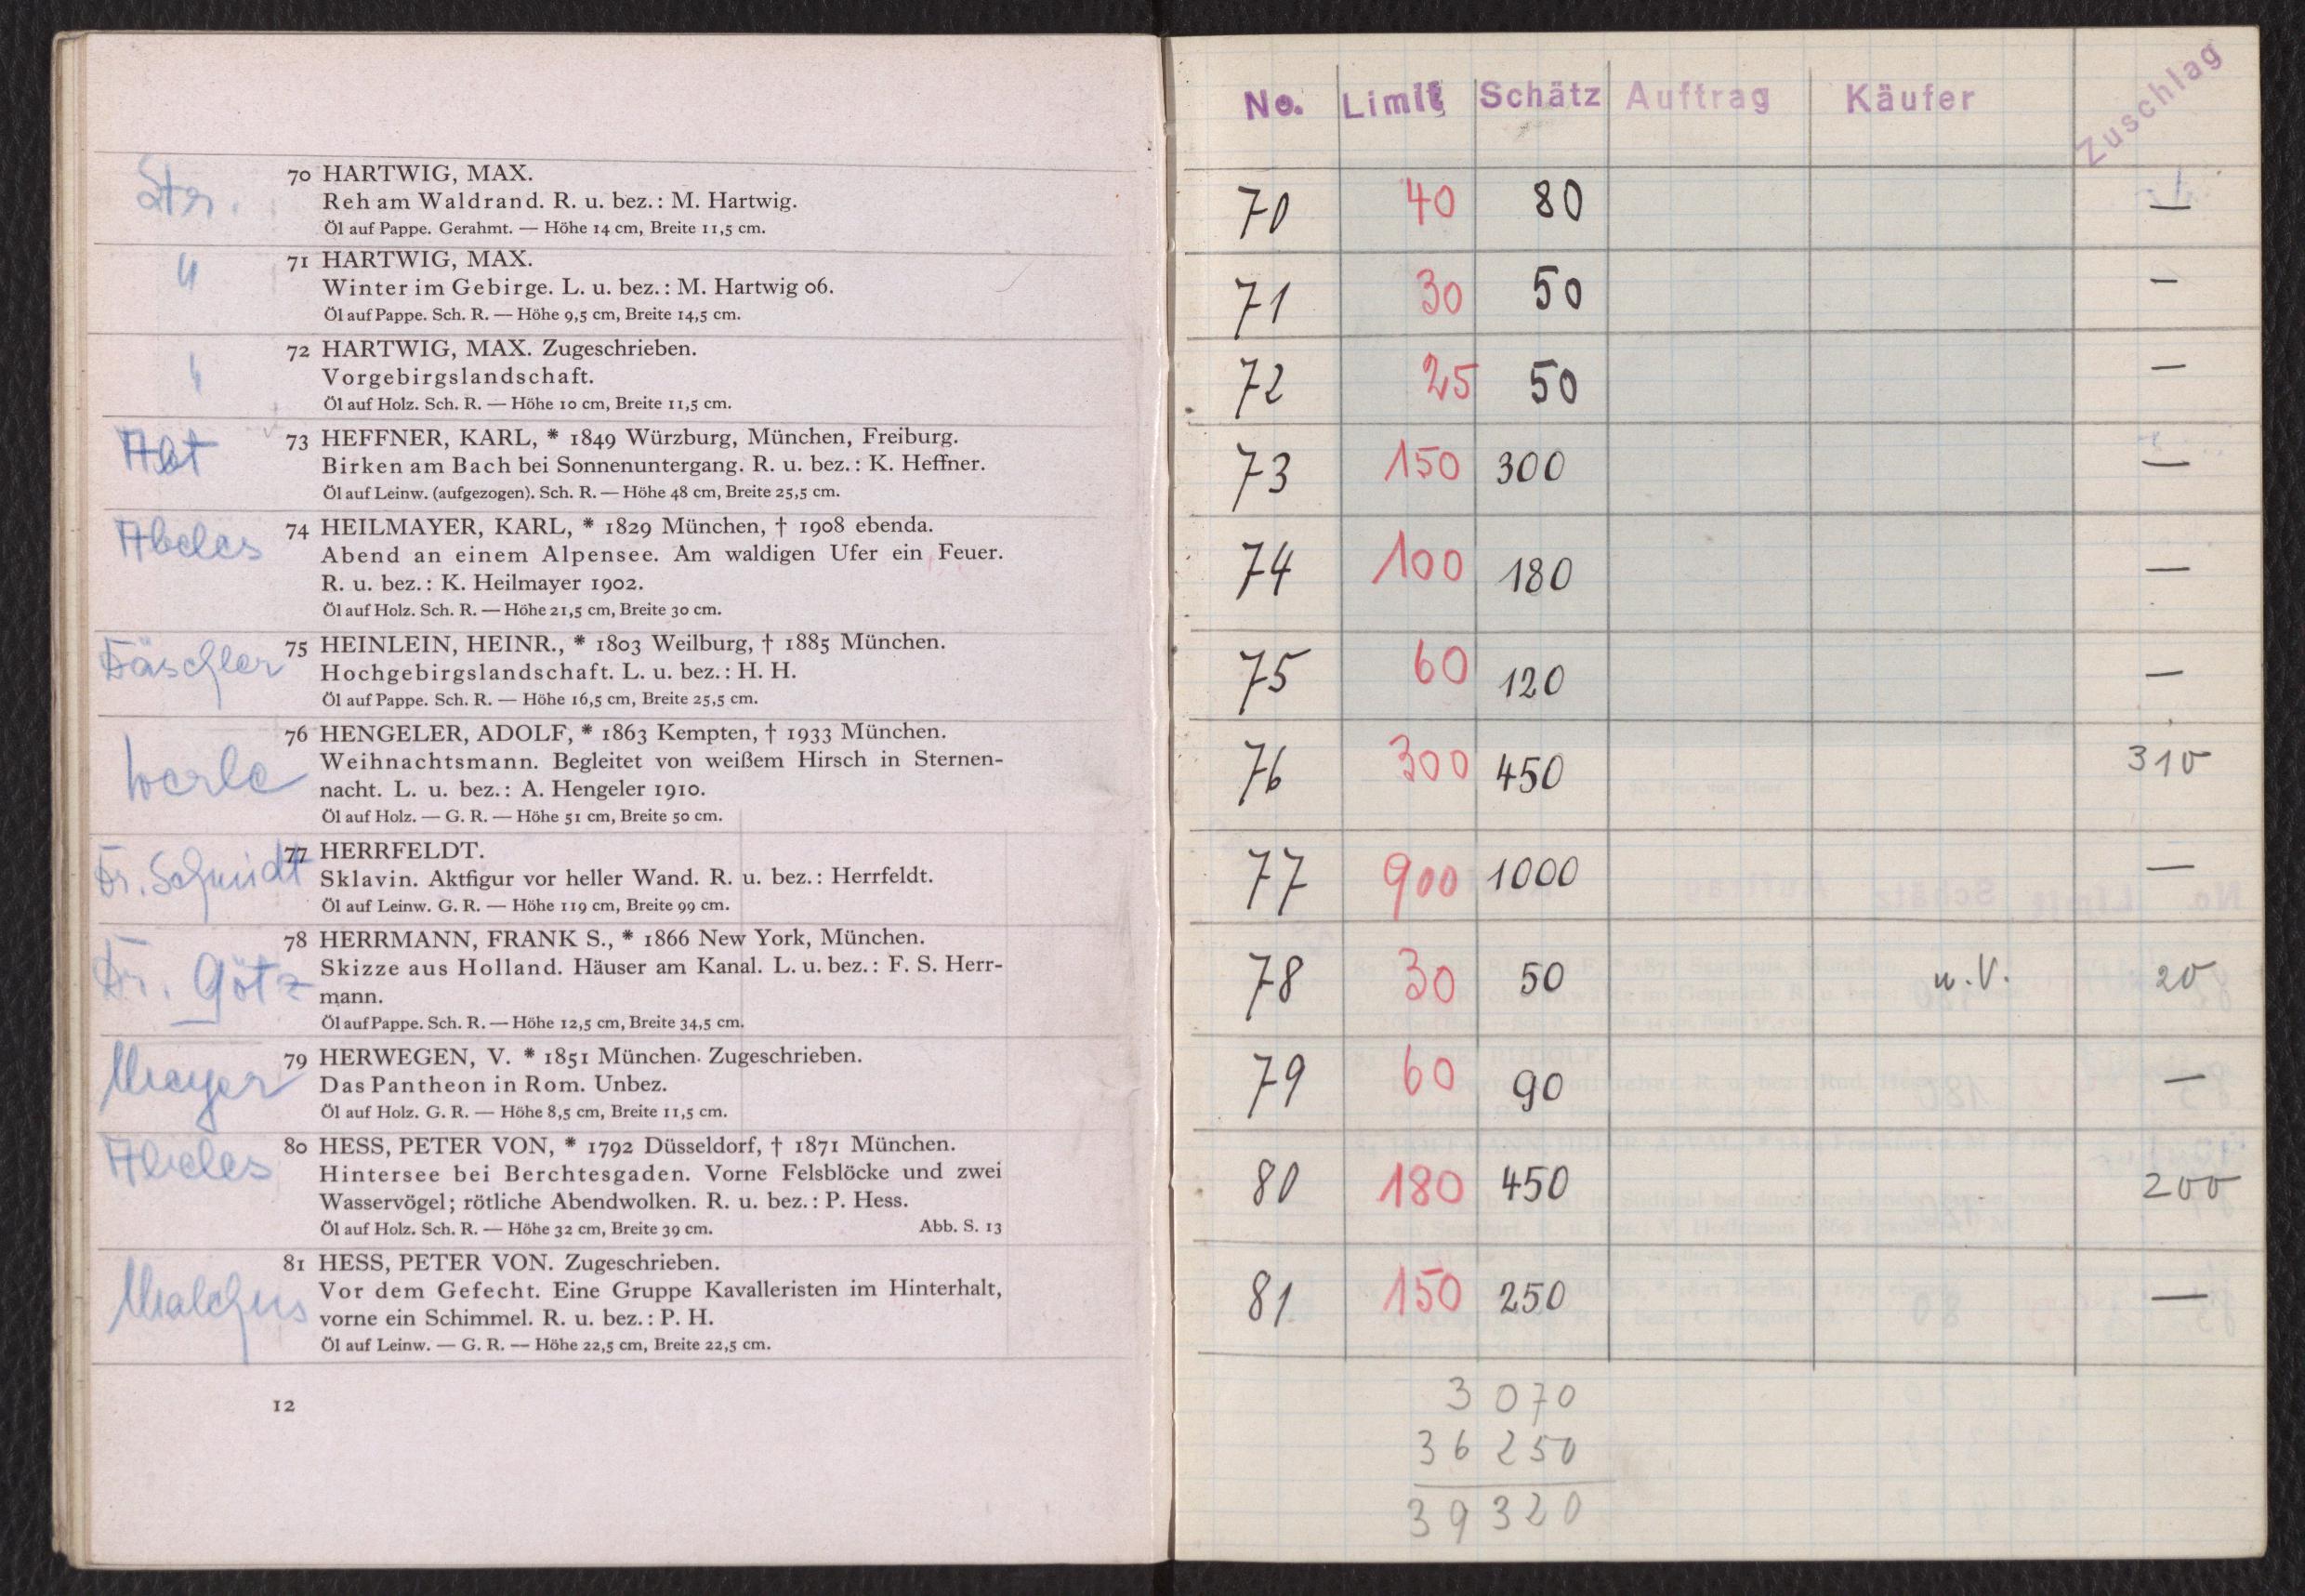 Str.
70 HARTWIG, MAX.
Reh am Waldrand. R. u. bez.: M. Hartwig.
Öl auf Pappe. Gerahmt. — Höhe 14 cm, Breite 11,5 cm.
71 HARTWIG, MAX.
Winter im Gebirge. L. u. bez.: M. Hartwig 06.
Öl auf Pappe. Sch. R. — Höhe 9,5 cm, Breite 14,5 cm.
72 HARTWIG, MAX. Zugeschrieben.
Vorgebirgslandschaft.
Öl auf Holz. Sch. R. — Höhe 10 cm, Breite 11,5 cm.
73 HEFFNER, KARL, * 1849 Würzburg, München, Freiburg.
Birken am Bach bei Sonnenuntergang. R. u. bez.: K. Heffner.
Öl auf Leinw. (aufgezogen). Sch. R. — Höhe 48 cm, Breite 25,5 cm.
Abeles
74 HEILMAYER, KARL, * 1829 München, † 1908 ebenda.
Abend an einem Alpensee. Am waldigen Ufer ein Feuer.
R. u. bez.: K. Heilmayer 1902.
Öl auf Holz. Sch. R. — Höhe 21,5 cm, Breite 30 cm.
75 HEINLEIN, HEINR., * 1803 Weilburg, † 1885 München.
Hochgebirgslandschaft. L. u. bez.: H. H.
Öl auf Pappe. Sch. R. — Höhe 16,5 cm, Breite 25,5 cm.
Werle
76 HENGELER, ADOLF, * 1863 Kempten, † 1933 München.
Weihnachtsmann. Begleitet von weißem Hirsch in Sternen-
nacht. L. u. bez.: A. Hengeler 1910.
Öl auf Holz. — G. R. — Höhe 51 cm, Breite 50 cm.
Dr. Schmidt
77 HERRFELDT.
Sklavin. Aktfigur vor heller Wand. R. u. bez.: Herrfeldt.
Öl auf Leinw. G. R. — Höhe 119 cm, Breite 99 cm.
Dr. Götz
78 HERRMANN, FRANK S., * 1866 New York, München.
Skizze aus Holland. Häuser am Kanal. L. u. bez.: F. S. Herr-
mann.
Öl auf Pappe. Sch. R. — Höhe 12,5 cm, Breite 34,5 cm.
Mayer
79 HERWEGEN, V. * 1851 München. Zugeschrieben.
Das Pantheon in Rom. Unbez.
Öl auf Holz. G. R. — Höhe 8,5 cm, Breite 11,5 cm.
Abeles
80 HESS, PETER VON, * 1792 Düsseldorf, † 1871 München.
Hintersee bei Berchtesgaden. Vorne Felsblöcke und zwei
Wasservögel; rötliche Abendwolken. R. u. bez.: P. Hess.
Öl auf Holz. Sch. R. — Höhe 32 cm, Breite 39 cm. Abb. S. 13
Malchus
81 HESS, PETER VON. Zugeschrieben.
Vor dem Gefecht. Eine Gruppe Kavalleristen im Hinterhalt,
vorne ein Schimmel. R. u. bez.: P. H.
Öl auf Leinw. — G. R. — Höhe 22,5 cm, Breite 22,5 cm.
12
No. Limit Schätz Auftrag Käufer Zuschlag
70 40 80 —
71 30 50 —
72 25 50 —
73 150 300 —
74 100 180 —
75 60 120 —
76 300 450 310
77 900 1000 —
78 30 50 u. V. 20
79 60 90 —
80 180 450 200
81 150 250 —
3 070
36 250
39 320